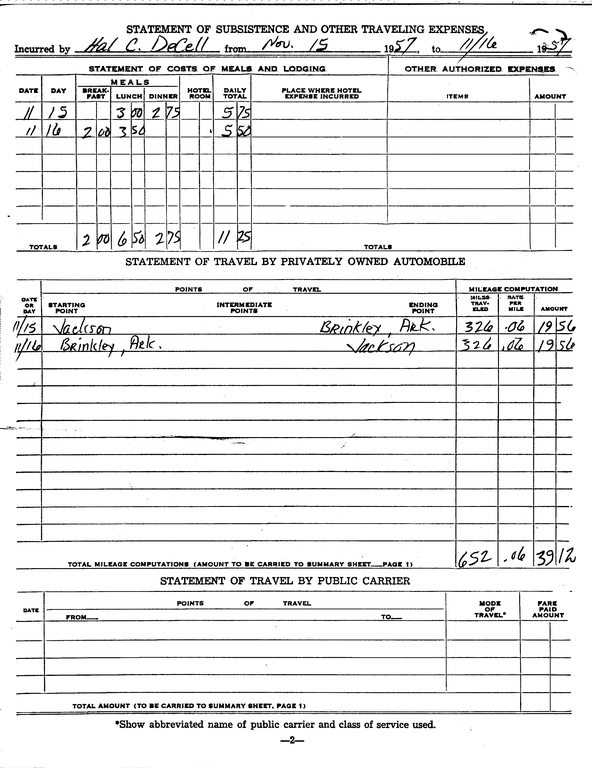 STATEMENT OF SUBSISTENCE AND OTHER TRAVELING EXPENSES
Incurred by Hal C. DeCell from Nov. 15 1957, to 11/16 1957
STATEMENT OF COSTS OF MEALS AND LODGING OTHER AUTHORIZED EXPENSES
MEALS
DATE DAY BREAK-FAST LUNCH DINNER HOTEL ROOM DAILY TOTAL PLACE WHERE HOTEL EXPENSE INCURRED ITEMS AMOUNT
11 15 3 00 2 75 5 75
11 16 2 00 3 50 5 50
TOTALS 2 00 6 50 2 75 11 25 TOTALS
STATEMENT OF TRAVEL BY PRIVATELY OWNED AUTOMOBILE
POINTS OF TRAVEL MILEAGE COMPUTATION
DATE OR DAY STARTING POINT INTERMEDIATE POINTS ENDING POINT MILES TRAV-ELED RATE PER MILE AMOUNT
11/15 Jackson Brinkley, Ark. 326 .06 19 56
11/16 Brinkley, Ark. Jackson 326 .06 19 56
TOTAL MILEAGE COMPUTATIONS (AMOUNT TO BE CARRIED TO SUMMARY SHEET—PAGE 1) 652 .06 39 12
STATEMENT OF TRAVEL BY PUBLIC CARRIER
DATE POINTS OF TRAVEL MODE OF TRAVEL* FARE PAID AMOUNT
FROM— TO—
TOTAL AMOUNT (TO BE CARRIED TO SUMMARY SHEET, PAGE 1)
*Show abbreviated name of public carrier and class of service used.
—2—